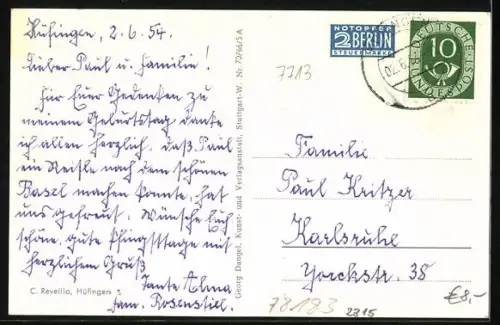 Hüfingen, 2.6.54.
Lieber Paul u. Familie!
Für Euer Gedenken zu
meinem Geburtstag danke
ich allen herzlich. daß Paul
ein Reisle nach dem schönen
Basel machen konnte, hat
uns gefreut. Wünsche Euch
schöne, gute Pfingsttage mit
herzlichem Gruß
Tante Alma
Fam. Rosenstiel.
C. Revellio, Hüfingen
Georg Dangel, Kunst- und Verlagsanstalt, Stuttgart-W. Nr. 72966/5 A
NOTOPFER
2 BERLIN
STEUERMARKE
7713
02.6.
10
DEUTSCHE
BUNDESPOST
Familie
Paul Kritzer
Karlsruhe
Yorckstr. 38
78183
2315
€8,-